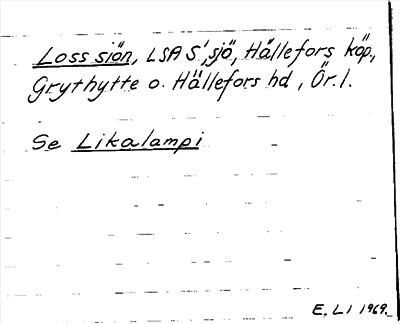 Losssiön, LSA S', sjö, Hällefors köp.,
Grythytte o. Hällefors hd, Ör. l.
Se Likalampi
E. LI 1969.